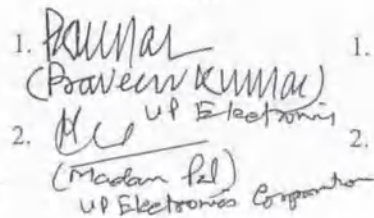 1. PKumar 1.
(Praveen Kumar)
UP Electronics
2. 2.
(Madan Pal)
UP Electronics Corporation